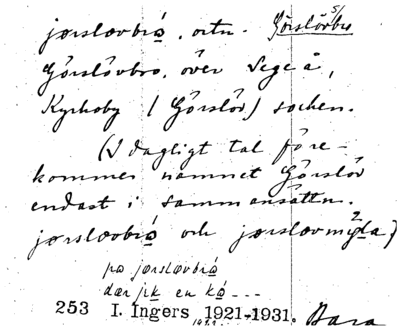 jørsløvbrơ, ortn. Görslövbro
Görslövbro, över Segeå,
Kyrkoby (Görslöv) socken.
(I dagligt tal före-
kommer namnet Görslöv
endast i sammansättn.
jørslovbrơ och jørslovmỵla)
på jørslovbrơ
dær jik en kơ ---
253 I. Ingers 1921-1931. Bara